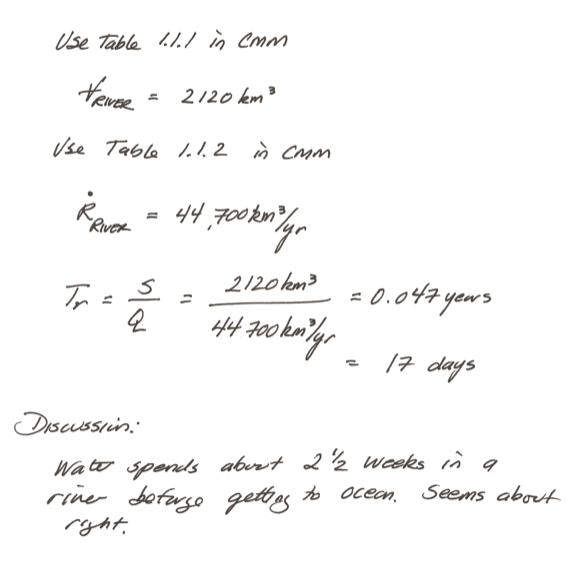 Use Table 1.1.1 in CMM
V̶RIVER = 2120 km³
Use Table 1.1.2 in CMM
ṘRIVER = 44,700 km³/yr
Tr = S/Q = 2120 km³ / 44 700 km³/yr = 0.047 years
= 17 days
Discussion:
Water spends about 2 ½ weeks in a
river beforge getting to ocean. Seems about
right.